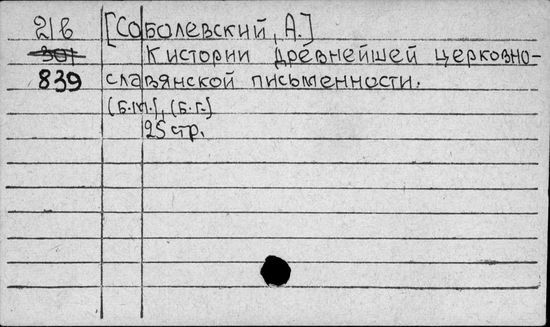 21в [Соболевский, А.]
301 К истории древнейшей церковно-
839 славянской письменности.
(Б.м.], (Б.г.]
25 стр.